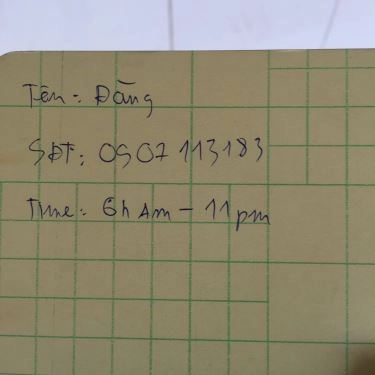 Tên: Đăng
SĐT: 0907 113183
Time: 6h Am - 11 pm